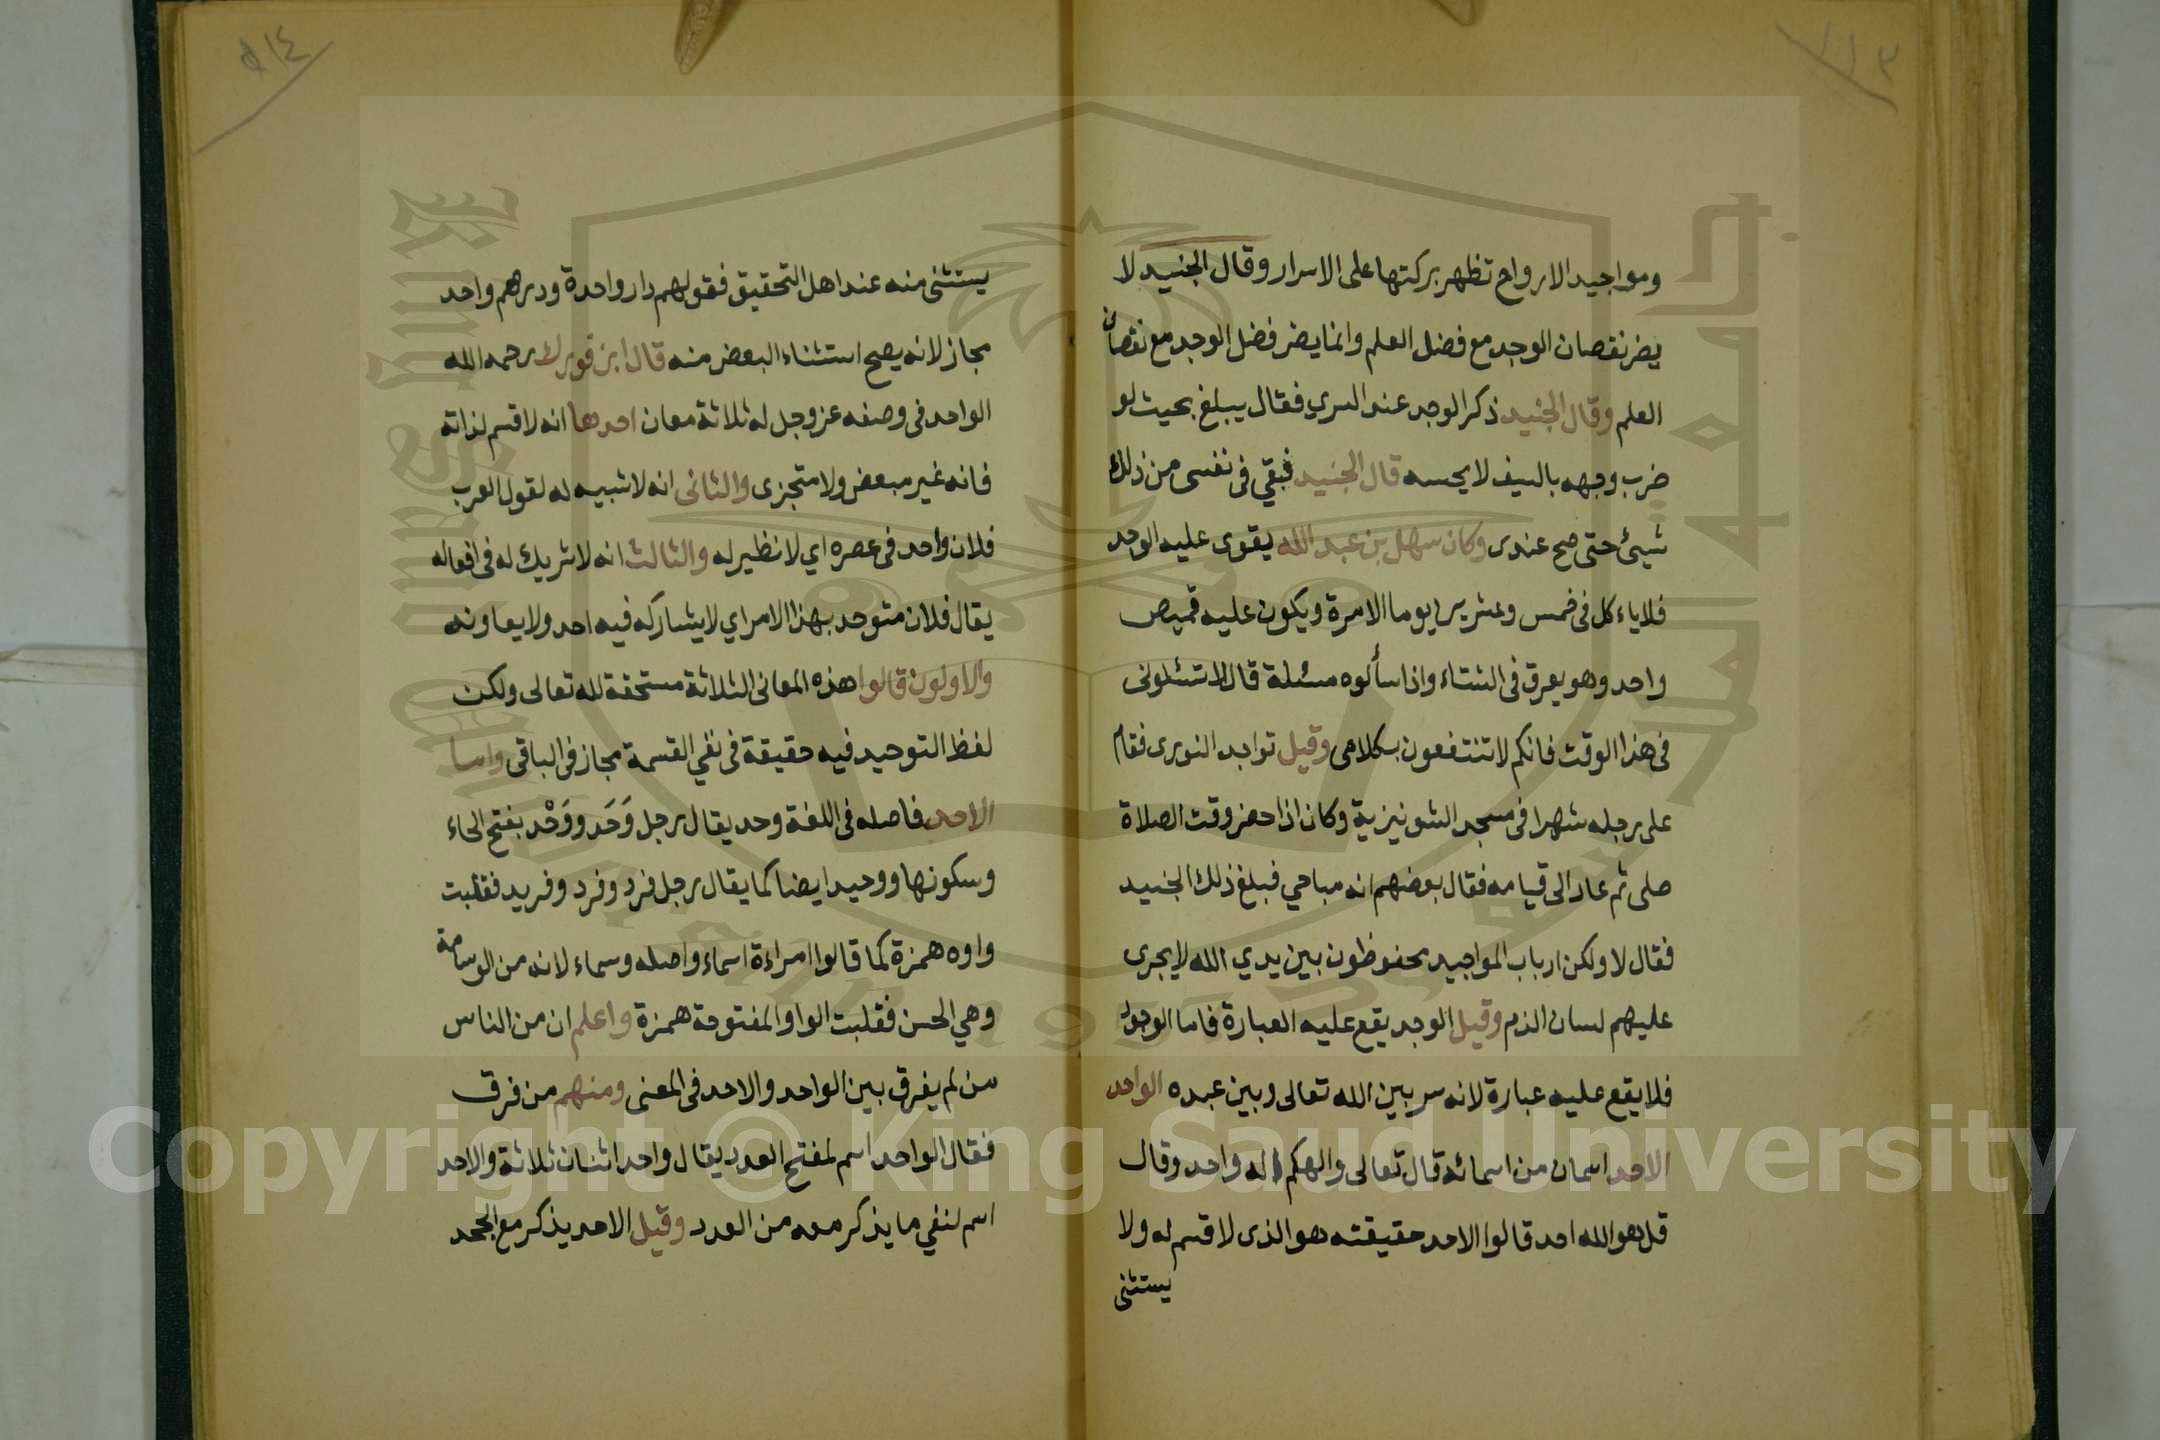 ١١٣
ومواجيد الارواح تظهر بركتها على الاسرار وقال الجنيد لا
يضر نقصان الوجد مع فضل العلم وانما يضر فضل الوجد مع نقصان
العلم وقال الجنيد ذكر الوجد عند السري فقال يبلغ بحيث لو
ضرب وجهه بالسيف لا يحسه قال الجنيد فبقي فى نفسى من ذلك
شيئ حتى صح عندى وكان سهل بن عبد الله يقوى عليه الوجد
فلا ياءكل فى خمس وعشرين يوما الا مرة ويكون عليه قميص
واحد وهو يعرق فى الشتاء واذا سألوه مسئلة قال لا تسئلونى
فى هذا الوقت فانكم لا تنتفعون بكلامى وقيل تواجد النورى فقام
على رجله شهرا فى مسجد الشونيزية وكان اذا حضر وقت الصلاة
صلى ثم عاد الى قيامه فقال بعضهم انه مباحي فبلغ ذلك الجنيد
فقال لا ولكن ارباب المواجيد محفوظون بين يدي الله لا يجرى
عليهم لسان الذم وقيل الوجد يقع عليه العبارة فاما الوجود
فلا يقع عليه عبارة لانه سر بين الله تعالى وبين عبده الواحد
الاحد اسمان من اسمائه قال تعالى والهكم اله واحد وقال
قل هو الله احد قالوا الاحد حقيقته هو الذى لا قسم له ولا
يستثنى
١١٤
يستثنى منه عند اهل التحقيق فقولهم دار واحدة ودرهم واحد
مجاز لانه يصح استثناء البعض منه قال ابن فورك رحمه الله
الواحد فى وصفه عز وجل له ثلاثة معان احدها انه لا قسم لذاته
فانه غير مبعض ولا متجزى والثانى انه لا شبيه له لقول العرب
فلان واحد فى عصره اي لا نظير له والثالث انه لا شريك له فى افعاله
يقال فلان متوحد بهذا الامر اي لا يشاركه فيه احد ولا يعاونه
والاولون قالوا هذه المعانى الثلاثة مستحقة لله تعالى ولكن
لفظ التوحيد فيه حقيقة فى نفي القسمة مجاز فى الباقى واما
الاحد فاصله فى اللغة وحد يقال رجل وَحَد ووَحْد بفتح الحاء
وسكونها ووحيد ايضا كما يقال رجل فرد وفرد وفريد فقلبت
واوه همزة كما قالوا امراءة اسماء واصله وسماء لانه من الوسامة
وهي الحسن فقلبت الواو المفتوحة همزة واعلم ان من الناس
من لم يفرق بين الواحد والاحد فى المعنى ومنهم من فرق
فقال الواحد اسم لمفتح العدد يقال واحد اثنان ثلاثة والاحد
اسم لنفي ما يذكر معه من العدد وقيل الاحد يذكر مع الجحد
Copyright © King Saud University